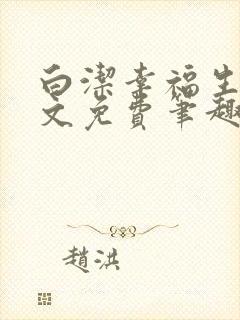 白潔幸福生
文免費筆趣
趙洪